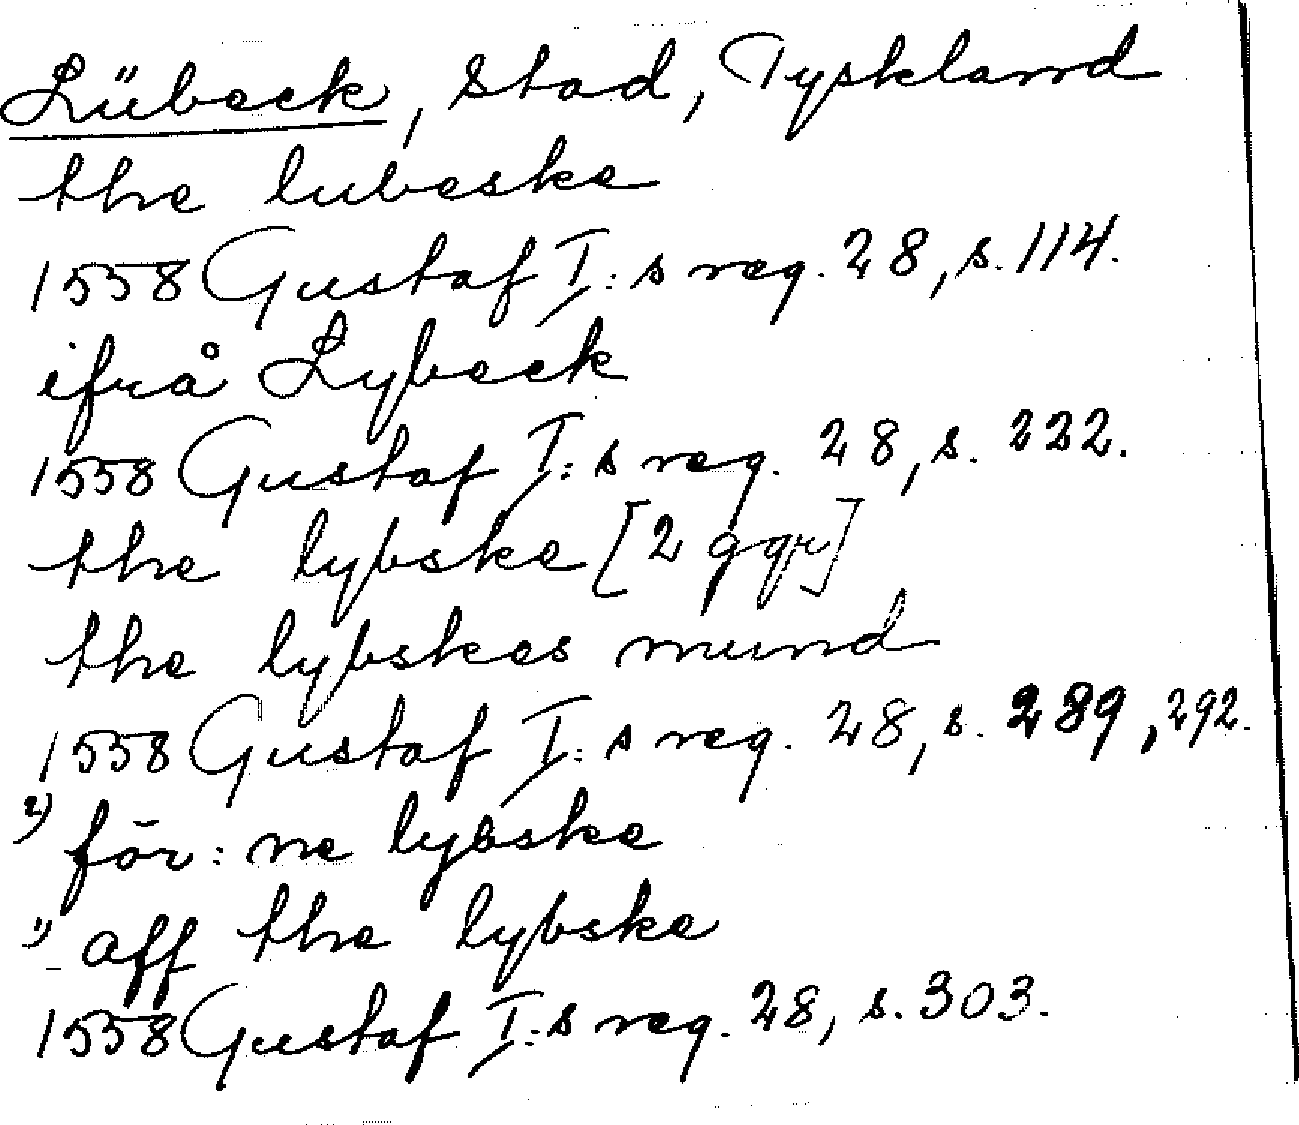 Lübeck, stad, Tyskland
the lubeske
1558 Gustaf I:s reg. 28, s. 114.
ifrå Lybeck
1558 Gustaf I:s reg. 28, s. 222.
the lybske [2 ggr]
the lybskes mund
1558 Gustaf I:s reg. 28, s. 289, 292.
2) för:ne lybske
1) aff the lybske
1558 Gustaf I:s reg. 28, s. 303.